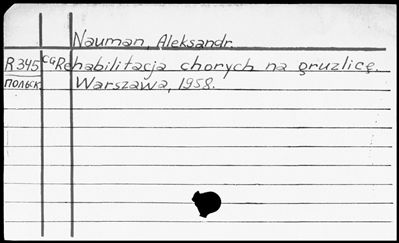 Nauman, Aleksandr.
R345 CG Rehabilitacja chorych na gruzlicę.
польск. Warszawa, 1958.